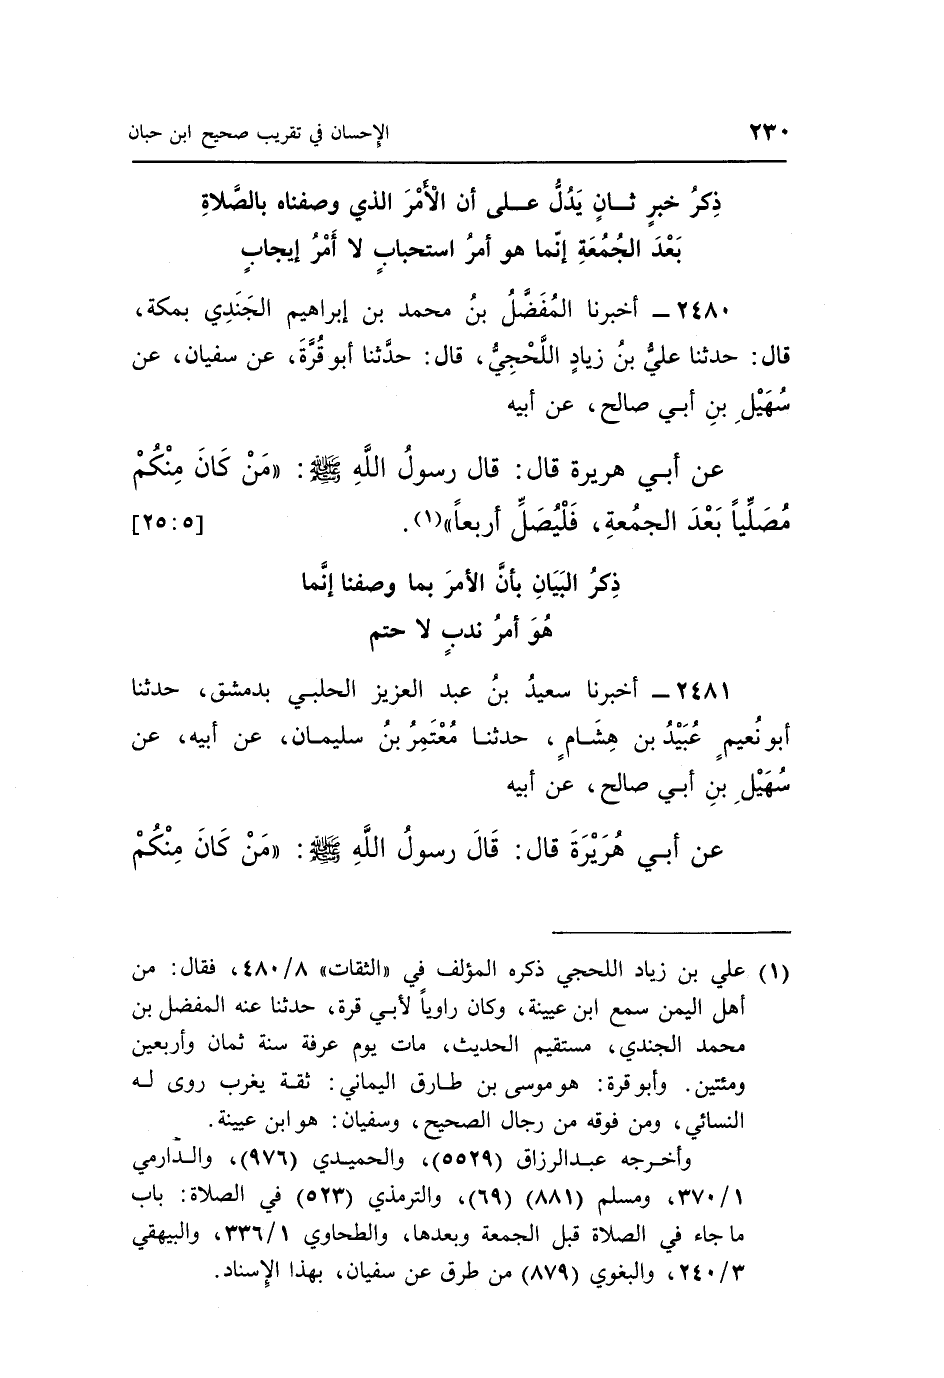 ٢٣٠ الإحسان في تقريب صحيح ابن حبان
ذِكرُ خبرٍ ثــانٍ يَدُلُّ عــلى أن الْأَمْرَ الذي وصفناه بالصَّلاةِ
بَعْدَ الجُمُعَةِ إنّما هو أمرُ استحبابٍ لا أَمْرُ إيجابٍ
٢٤٨٠ ـ أخبرنا المُفَضَّلُ بنُ محمد بن إبراهيم الجَنَدِي بمكة،
قال: حدثنا عليُّ بنُ زيادٍ اللَّحْجِيُّ، قال: حدَّثنا أبو قُرَّةَ، عن سفيان، عن
سُهَيْلِ بنِ أبـي صالح، عن أبيه
عن أبـي هريرة قال: قال رسولُ اللَّهِ ﷺ: «مَنْ كَانَ مِنْكُمْ
مُصَلِّياً بَعْدَ الجمُعةِ، فَلْيُصَلِّ أربعاً»(١). [٢٥:٥]
ذِكرُ البَيَانِ بأنَّ الأمرَ بما وصفنا إنَّما
هُوَ أمرُ ندبٍ لا حتم
٢٤٨١ ـ أخبرنا سعيدُ بنُ عبد العزيز الحلبـي بدمشق، حدثنا
أبو نُعيمٍ عُبَيْدُ بن هِشَـامٍ، حدثنـا مُعْتَمِرُ بنُ سليمـان، عن أبيه، عن
سُهَيْلِ بنِ أبـي صالح، عن أبيه
عن أبـي هُرَيْرَةَ قال: قَالَ رسولُ اللَّهِ ﷺ: «مَنْ كَانَ مِنْكُمْ
(١) علي بن زياد اللحجي ذكره المؤلف في «الثقات» ٤٨٠/٨، فقال: من
أهل اليمن سمع ابن عيينة، وكان راوياً لأبـي قرة، حدثنا عنه المفضل بن
محمد الجندي، مستقيم الحديث، مات يوم عرفة سنة ثمان وأربعين
ومئتين. وأبو قرة: هو موسى بن طـارق اليماني: ثقـة يغرب روى لـه
النسائي، ومن فوقه من رجال الصحيح، وسفيان: هو ابن عيينة.
وأخـرجه عبـدالرزاق (٥٥٢٩)، والحميـدي (٩٧٦)، والـدّارمي
٣٧٠/١، ومسلم (٨٨١) (٦٩)، والترمذي (٥٢٣) في الصلاة: باب
ما جاء في الصلاة قبل الجمعة وبعدها، والطحاوي ٣٣٦/١، والبيهقي
٢٤٠/٣، والبغوي (٨٧٩) من طرق عن سفيان، بهذا الإسناد.